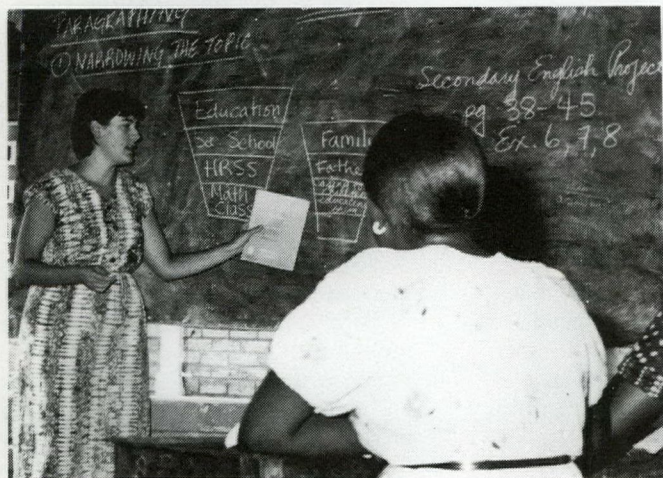 PARAGRAPHING
① NARROWING THE TOPIC
Education
Se School
HRSS
Math
Class
Famil
Fathe
education
Secondary English Project
pg 38-45
Ex. 6, 7, 8